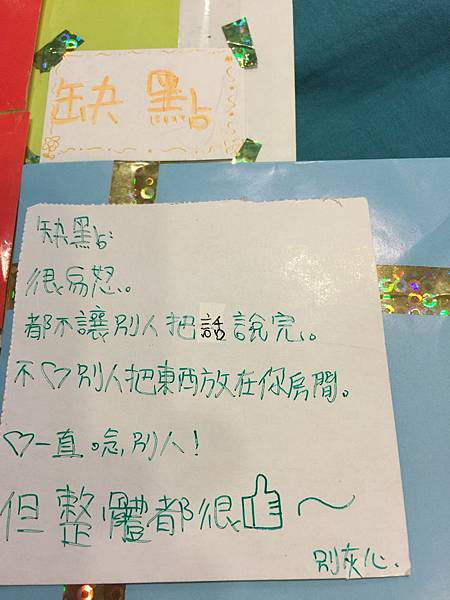 缺點
缺點:
很易怒。
都不讓別人把話說完。
不♡別人把東西放在你房間。
♡一直唸別人!
但整體都很👍～
別灰心.